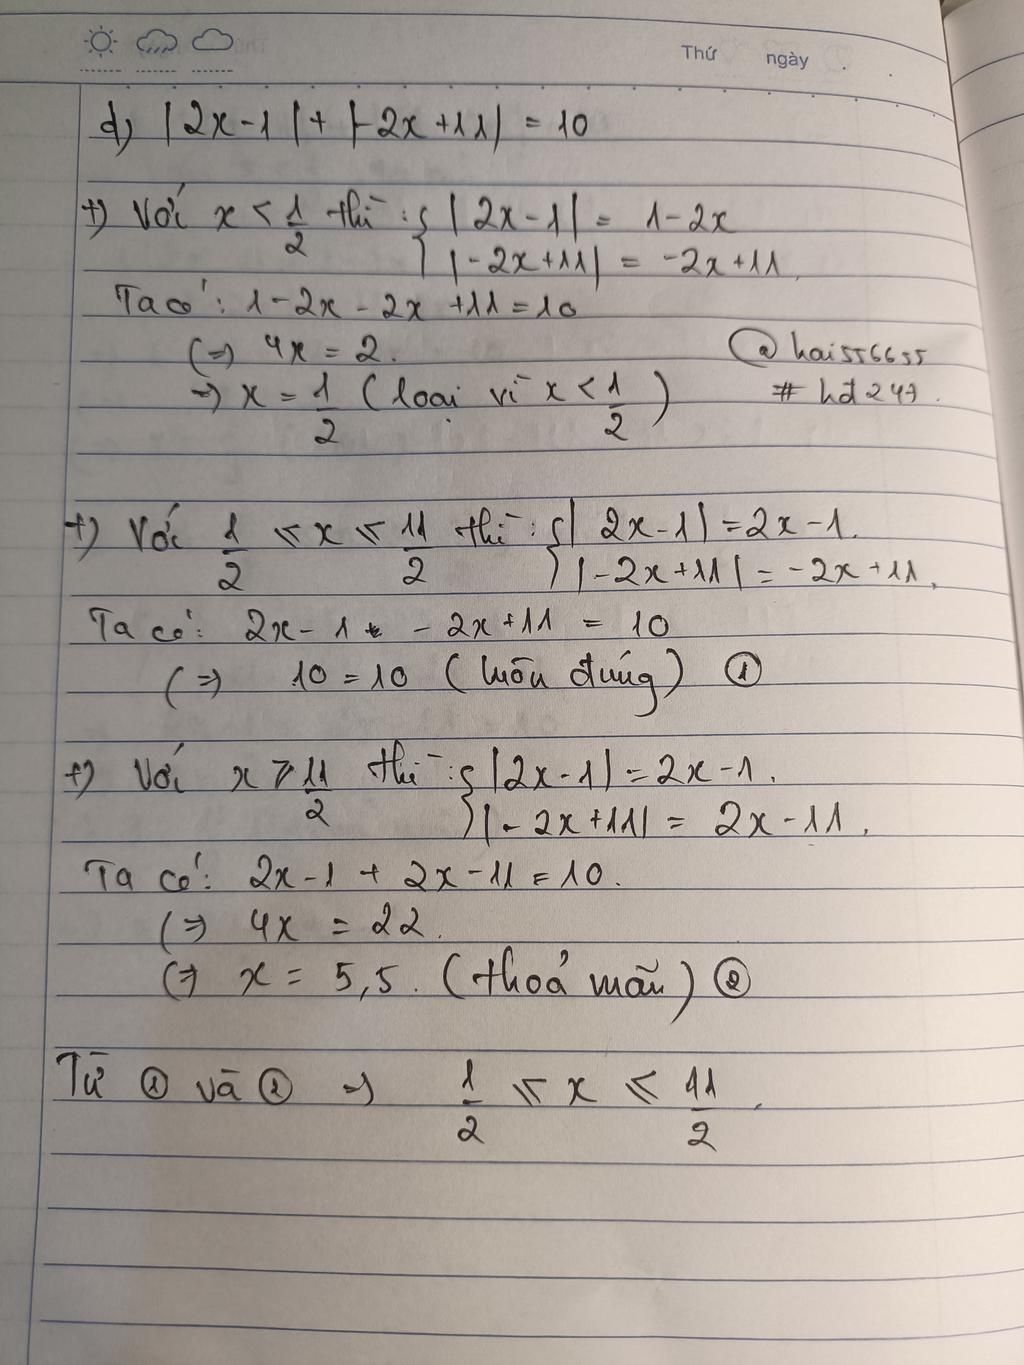 Thứ ngày
d) |2x-1| + |-2x+11| = 10
+) Với x < 1/2 thì : { |2x-1| = 1-2x
|-2x+11| = -2x+11.
Ta có : 1-2x-2x+11=10
(=> 4x = 2.
=> x = 1/2 (loại vì x < 1/2)
@hai556655
# hđ247.
+) Với 1/2 ≤ x ≤ 11/2 thì : { |2x-1| = 2x-1.
|-2x+11| = -2x+11.
Ta có: 2x-1 - 2x+11 = 10
(=> 10 = 10 (luôn đúng) ①
+) Với x ≥ 11/2 thì : { |2x-1| = 2x-1.
|-2x+11| = 2x-11.
Ta có: 2x-1 + 2x-11 = 10.
(=> 4x = 22.
(=> x = 5,5. (thoả mãn) ②
Từ ① và ② => 1/2 ≤ x ≤ 11/2.